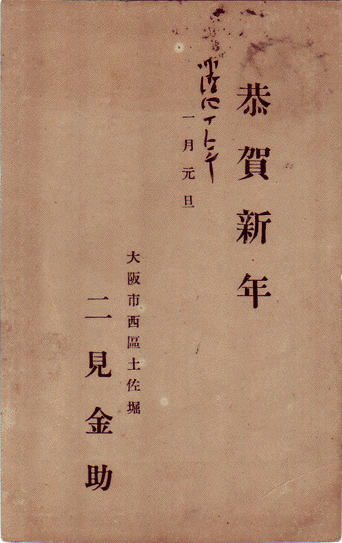 恭賀新年
明治四十年
一月元旦
大阪市西區土佐堀
二見金助